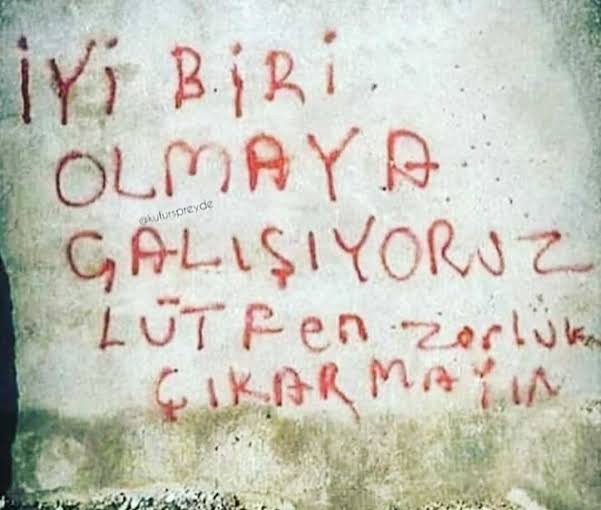 İYİ BİRİ
OLMAYA
@kufurspreyde
ÇALIŞIYORUZ
LÜTFen zorluk
ÇIKARMAYIN